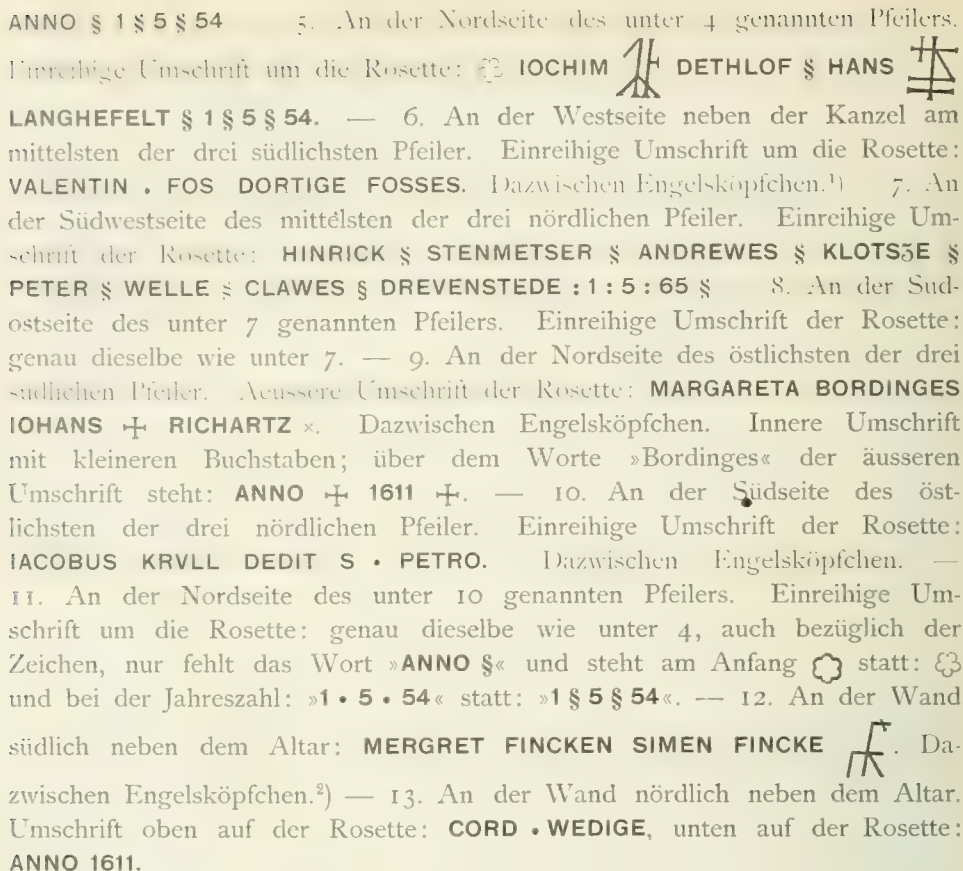 ANNO § 1 § 5 § 54 5. An der Nordseite des unter 4 genannten Pfeilers.
Einreihige Umschrift um die Rosette: IOCHIM DETHLOF § HANS
LANGHEFELT § 1 § 5 § 54. — 6. An der Westseite neben der Kanzel am
mittelsten der drei südlichsten Pfeiler. Einreihige Umschrift um die Rosette:
VALENTIN . FOS DORTIGE FOSSES. Dazwischen Engelsköpfchen.¹) 7. An
der Südwestseite des mittelsten der drei nördlichen Pfeiler. Einreihige Um-
schrift der Rosette: HINRICK § STENMETSER § ANDREWES § KLOTSƷE §
PETER § WELLE § CLAWES § DREVENSTEDE : 1 : 5 : 65 § 8. An der Süd-
ostseite des unter 7 genannten Pfeilers. Einreihige Umschrift der Rosette:
genau dieselbe wie unter 7. — 9. An der Nordseite des östlichsten der drei
südlichen Pfeiler. Aeussere Umschrift der Rosette: MARGARETA BORDINGES
IOHANS ☩ RICHARTZ ×. Dazwischen Engelsköpfchen. Innere Umschrift
mit kleineren Buchstaben; über dem Worte »Bordinges« der äusseren
Umschrift steht: ANNO ☩ 1611 ☩. — 10. An der Südseite des öst-
lichsten der drei nördlichen Pfeiler. Einreihige Umschrift der Rosette:
IACOBUS KRVLL DEDIT S • PETRO. Dazwischen Engelsköpfchen. —
11. An der Nordseite des unter 10 genannten Pfeilers. Einreihige Um-
schrift um die Rosette: genau dieselbe wie unter 4, auch bezüglich der
Zeichen, nur fehlt das Wort »ANNO §« und steht am Anfang statt:
und bei der Jahreszahl: »1 • 5 • 54« statt: »1 § 5 § 54«. — 12. An der Wand
südlich neben dem Altar: MERGRET FINCKEN SIMEN FINCKE . Da-
zwischen Engelsköpfchen.²) — 13. An der Wand nördlich neben dem Altar.
Umschrift oben auf der Rosette: CORD • WEDIGE, unten auf der Rosette:
ANNO 1611.